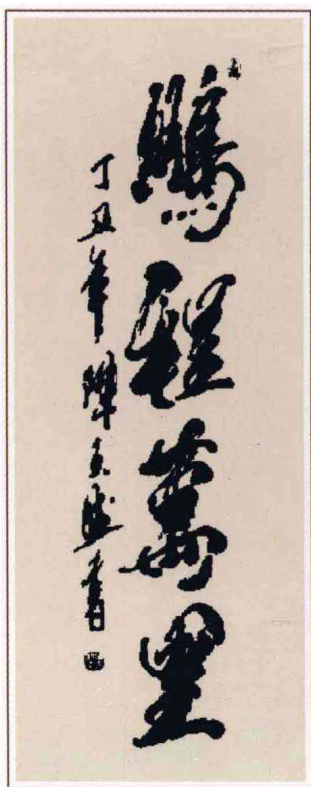 鵬程萬里
丁丑年陳書